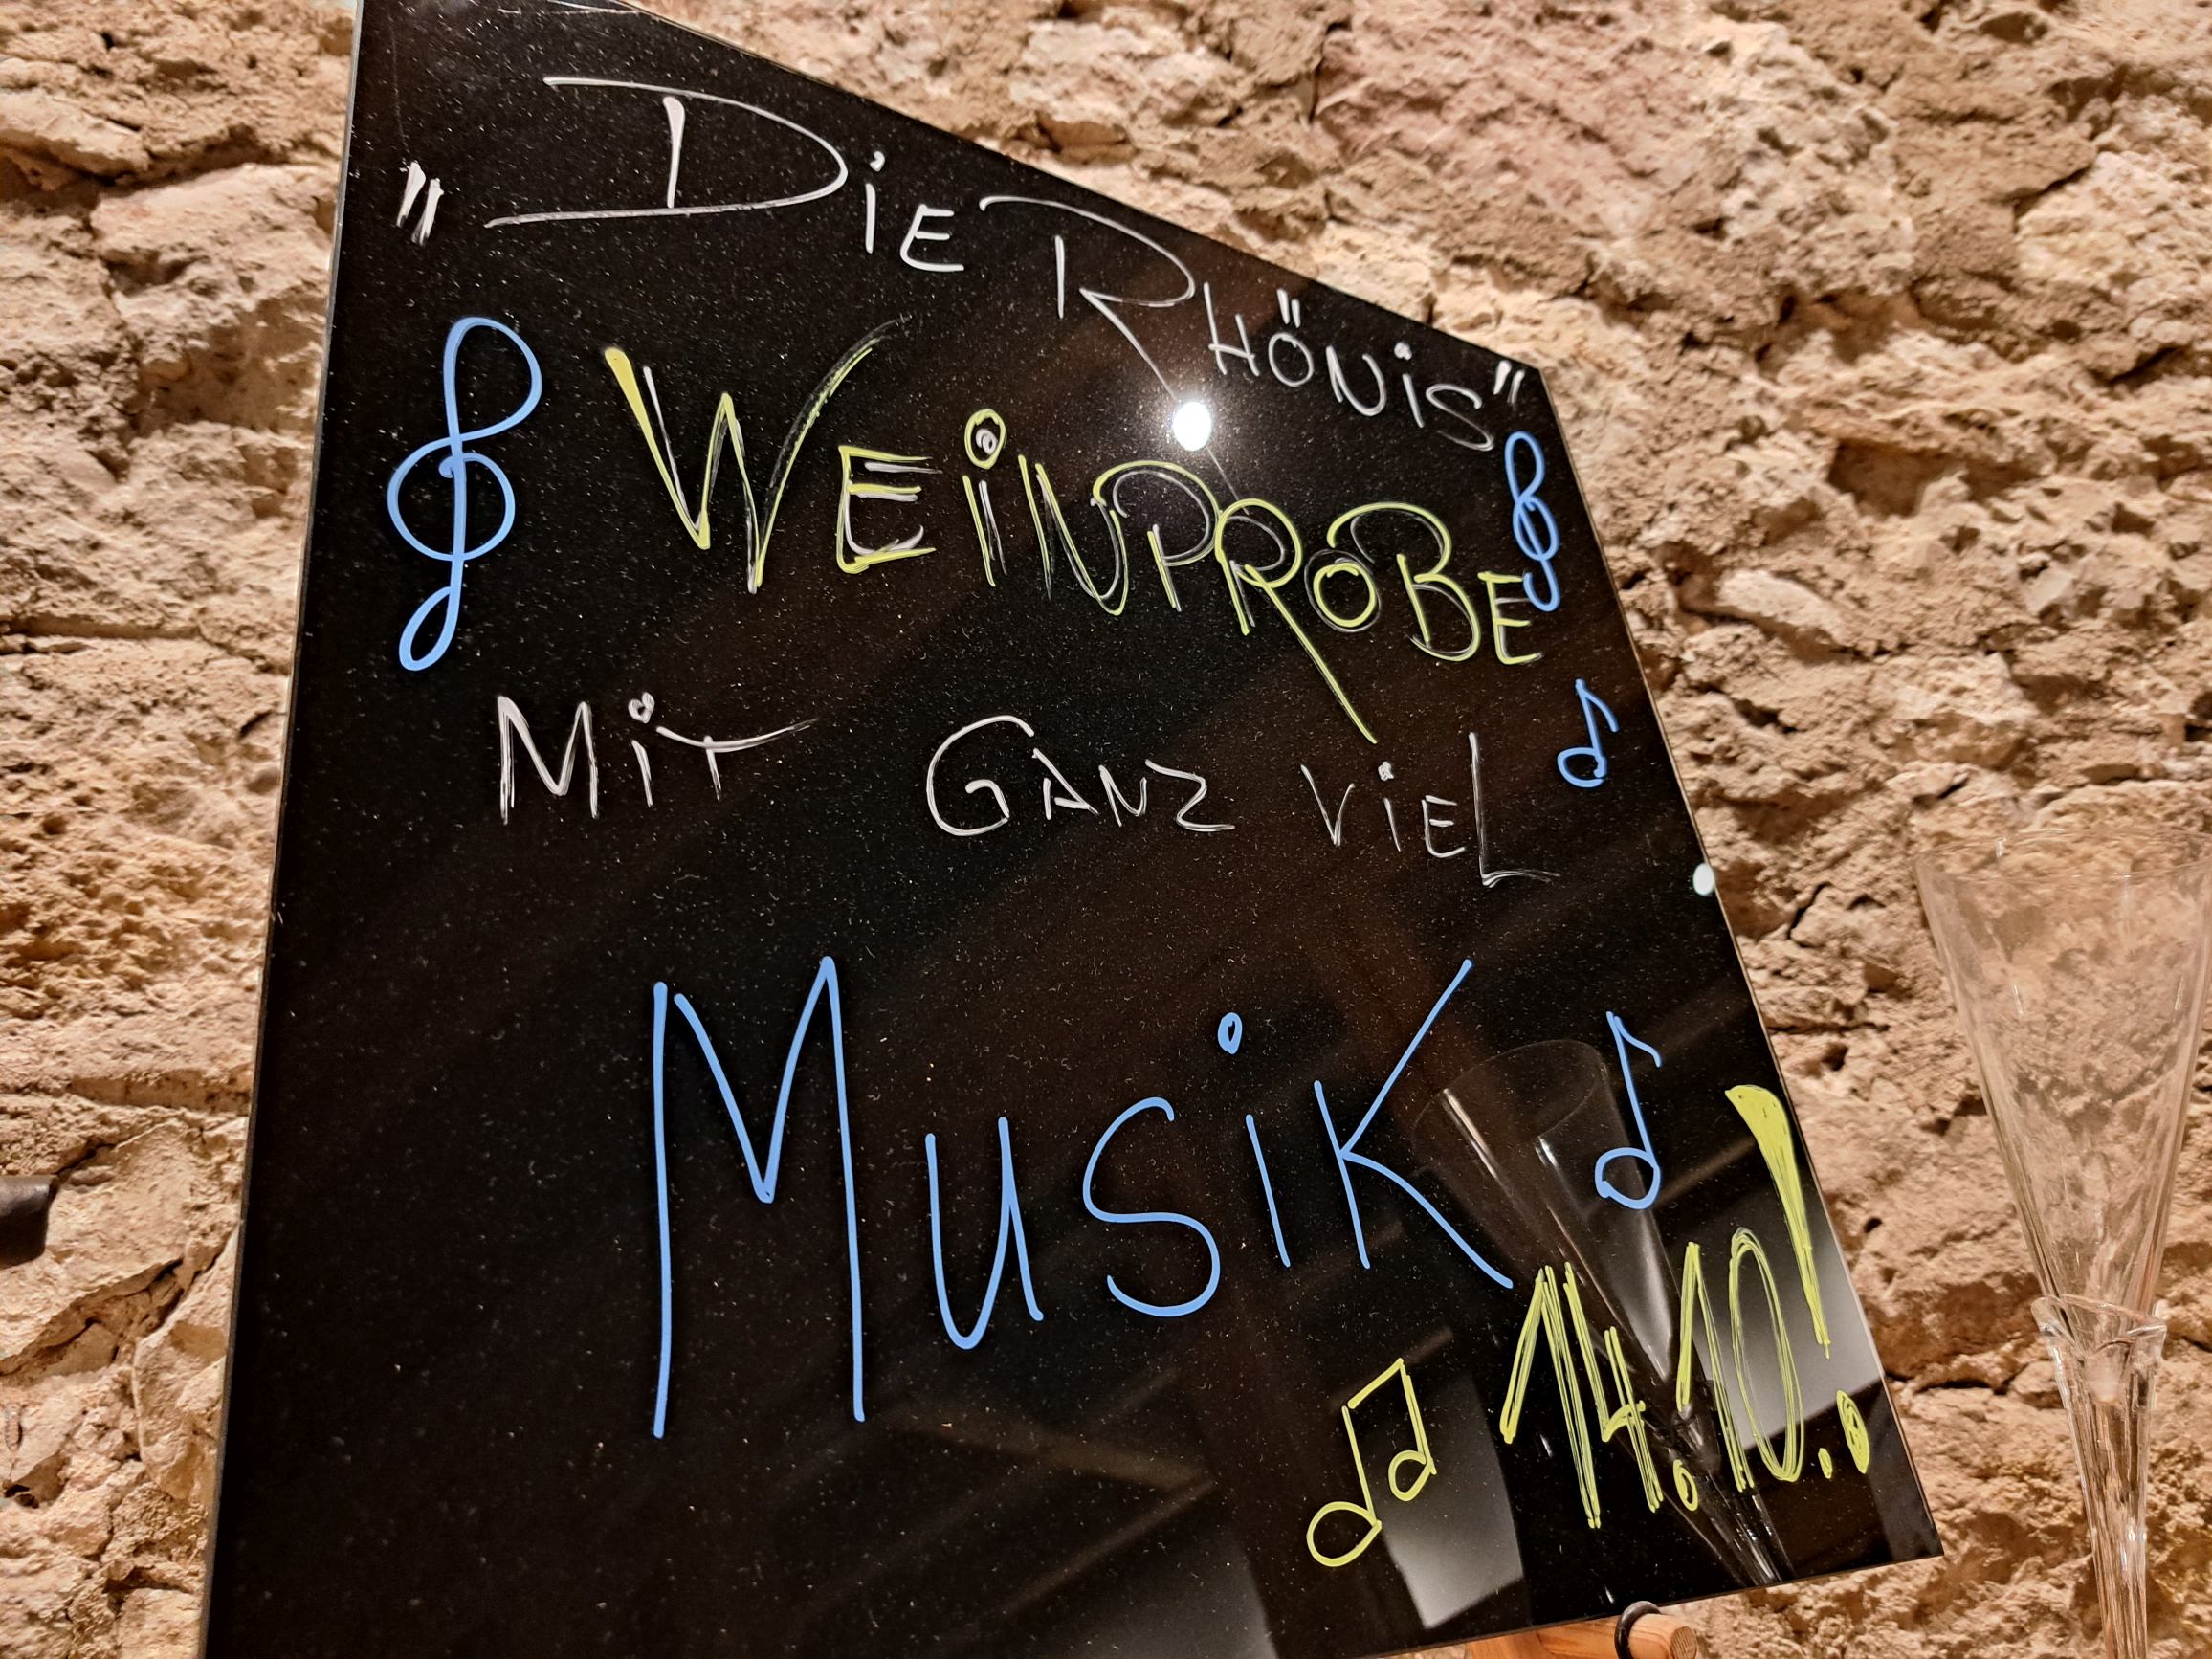 "Die Rhönis"
Weinprobe
Mit Ganz viel
Musik
14.10.!